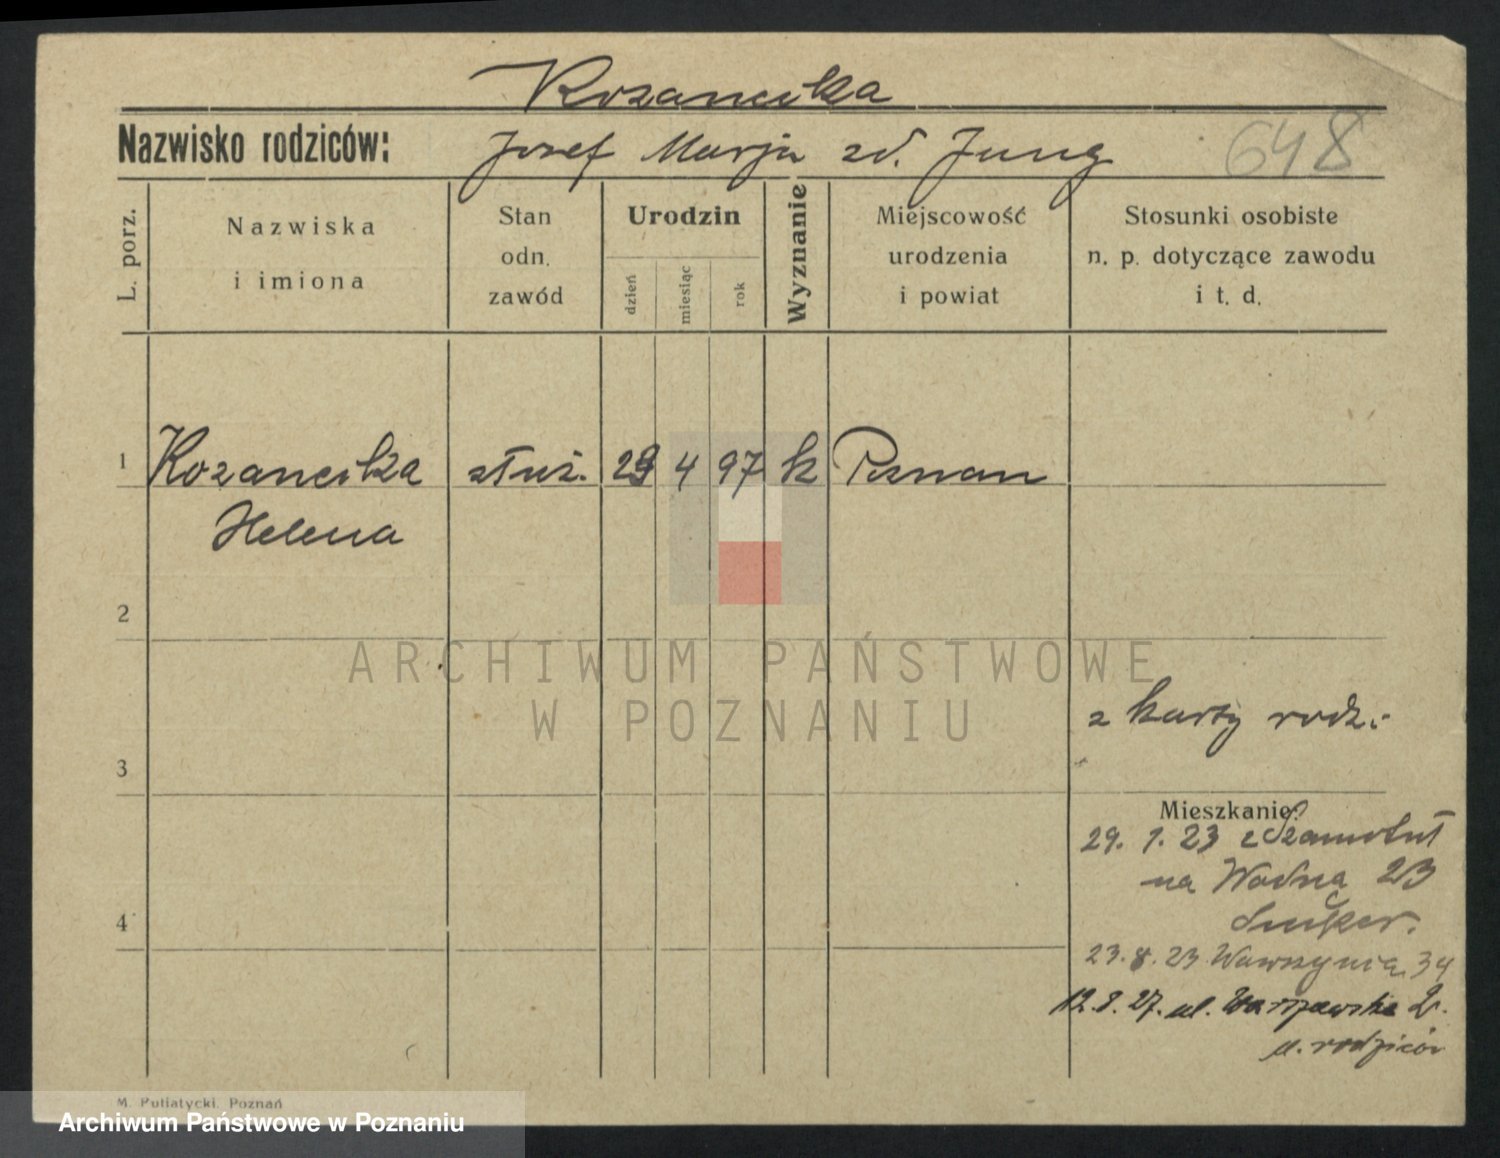 Kozanecka
Nazwisko rodziców: Josef Marja zd. Jung
648
L. porz.
Nazwiska
i imiona
Stan
odn.
zawód
Urodzin
dzień
miesiąc
rok
Wyznanie
Miejscowość
urodzenia
i powiat
Stosunki osobiste
n. p. dotyczące zawodu
i t. d.
1 Kozanecka służ. 29 4 97 k Poznan
Helena
2
ARCHIWUM PAŃSTWOWE
W POZNANIU
z karty rodz.
3
Mieszkanie:
29. 1. 23 z Szamotuł
na Wodną 23
4
23. 8. 23 Wawrzynia 34
12. 8. 27. ul. Warszawska 2.
u. rodziców
M. Putiatycki, Poznań
Archiwum Państwowe w Poznaniu